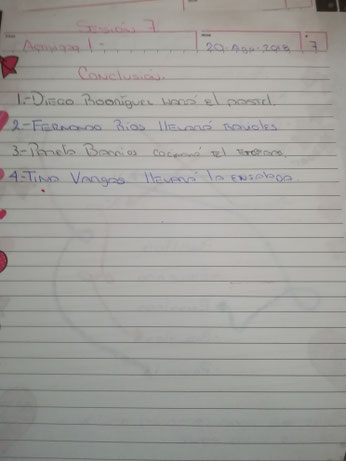 Sesión 7
Actividad 1 20-Ago-2018 7
Conclusión.
1.-Diego Rodríguez hará el pastel.
2-Fernando Ríos llevará
3-Pamela Barrios el
4-Tino Vargas llevará la ensalada.